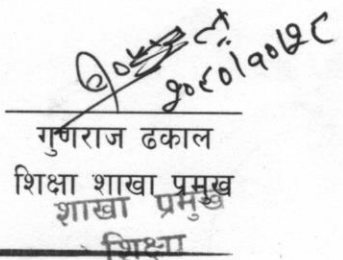 २०८०।१०।२८
गुणराज ढकाल
शिक्षा शाखा प्रमुख
शाखा प्रमुख
शिक्षा